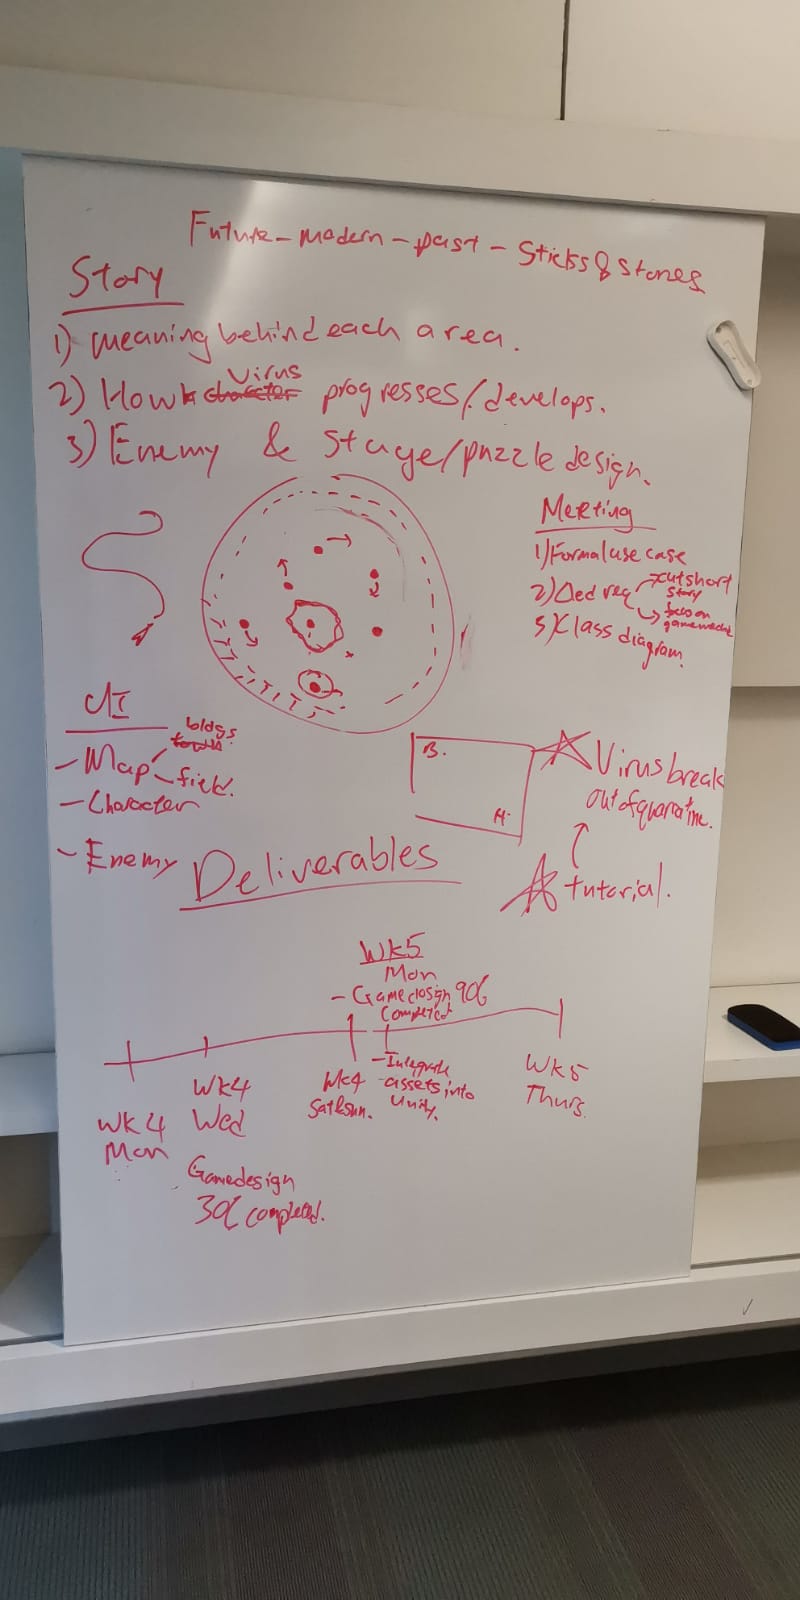 Future - modern - past - Sticks & stones
Story
1) meaning behind each area.
Virus
2) How character progresses/develops.
3) Enemy & Stage/puzzle design.
Meeting
1) Formal use case
2) Ded req → cut short
story
→ focus on
3) Class diagram.
UI
- Map
bldgs
town
field.
- Character
- Enemy
B.
H.
Virus break
out of quarantine.
tutorial.
Deliverables
Wk5
Mon
- Game design 90%
completed
- Integrate
assets into
Unity.
Wk 4
Mon
Wk4
Wed
Gamedesign
30% completed.
Wk4
Sat&sun.
Wk5
Thurs